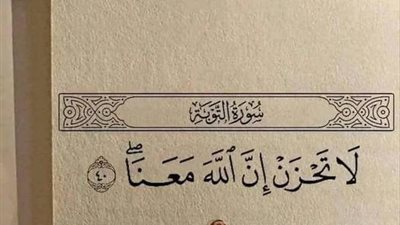 سُورَةُ التَّوْبَة
لَا تَحْزَنْ إِنَّ ٱللَّهَ مَعَنَاۖ ٤٠